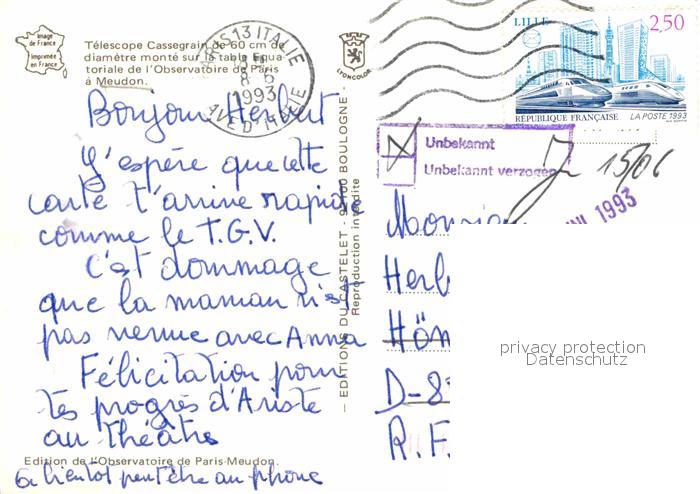 Image
de France
Imprimée
en France
Télescope Cassegrain de 60 cm de
diamètre monté sur la table Équa-
toriale de l'Observatoire de Paris
à Meudon.
LYONCOLOR
PARIS 13 ITALIE
8-6
1993
AV. D'ITALIE
LILLE
2,50
RÉPUBLIQUE FRANÇAISE
LA POSTE 1993
Bonjour Herbert
J'espère que cette
carte t'arrive rapide
comme le T.G.V.
C'est dommage
que la maman n'est
pas venue avec Anna
Félicitation pour
tes progrès d'Artiste
au théâtre
Edition de l'Observatoire de Paris-Meudon.
A bientôt peut être au phone
EDITIONS DU CASTELET - 92100 BOULOGNE -
Reproduction interdite
Unbekannt
Unbekannt verzogen
15/06
1993
Monsieu
Herb
Hön
D-8
R.F
privacy protection
Datenschutz